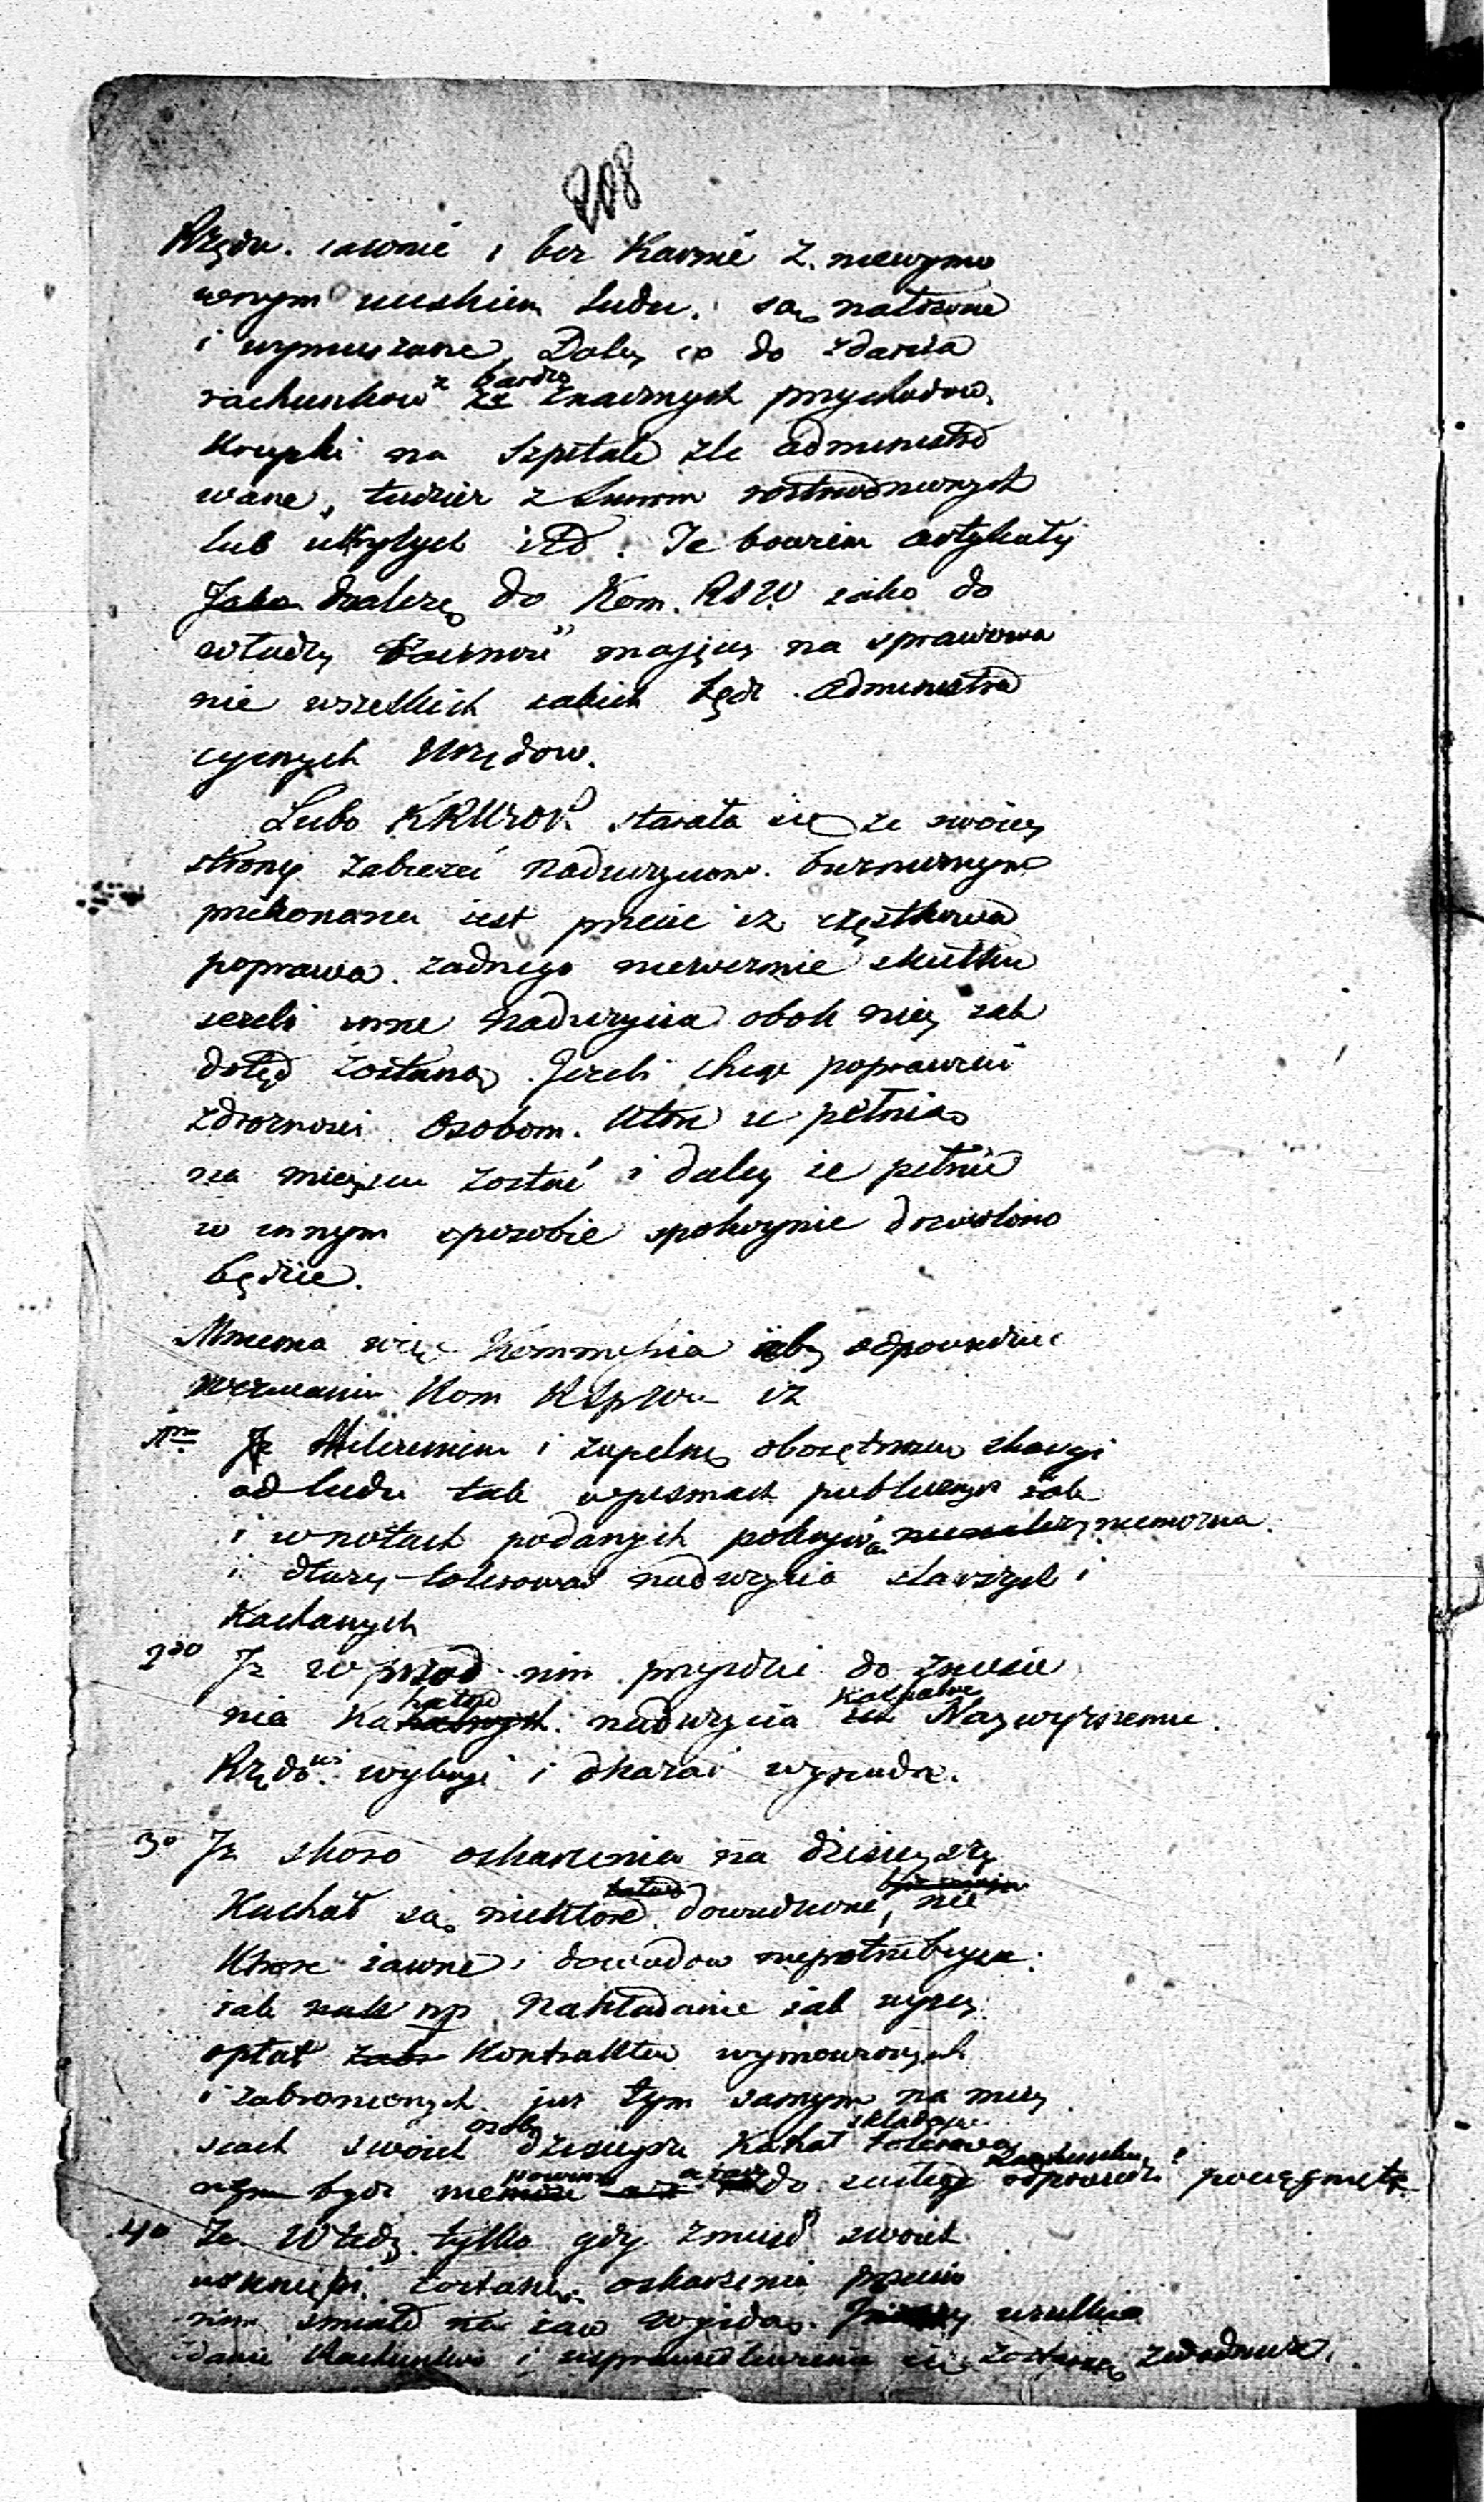 208
Rządu. iawnie i bez Karnie z. niewymo
wnym uciskiem Ludu. są nałożone
i wymuszane, Daley co do zdania
rachunkow z bardzo znacznych przychodow.
Krupki na Szpitale źle administro
wane, tudzież z Summ roztrwonionych
lub ukrytych itd. Te bowiem artykuły
Jako należą do Kom. RSW iako do
władzy baczność maiącey na sprawowa
nie wszelkich iakich bądź administra
cyinych Urzędow.
Lubo KRWROP. starała się ze swoiey
strony zabieżeć nadużyciom. bużniczym
przekonana iest przecie iż cząstkowa
poprawa. żadnego nieweźmie skutku
ieżeli inne nadużycia obok niey iak
dotąd zostaną. Jeżeli chęć poprawić
zdrożności Osobom. które ie pełnią
na mieyscu zostać i daley ie pełnić
w innym sposobie spokoynie dozwolono
będzie.
Mniema więc Kommissia iżby odpowiedzieć
wezwaniu Kom RSpWu iż
1mo Iż Milczeniem i zupełną oboiętnością skargi
od ludu tak w pismach publicznych iak
i w notach podanych pokrywać niemożna
i dłużey tolerować nadużycia starszych i
Kachanych
2do Iż w przod nim przyidzie do zniesie
nia nadużycia Kachalne Naywyższemu
Rządowi wykryć i okazać wypada.
3o Iż skoro oskarżenia na dzisieyszy
Kachał są niektore dowiedzione, nie
ktore iawne i dowodow niepotrzebuiące
iak np nakładanie iak wyżey
opłat Kontraktem wymowionych
i zabronionych. iuż tym samym na miey
scach swoich osoby dzisieyszy Kahał składaiące
być nie powinny a zaś do ścisłey odpowiedzi pociągnięte
4o Iż Wtedy tylko gdy z mieysc swoich
usunięci zostaną oskarżenia przeciw
nim śmiało na iaw wyidą. wszelkie
zdanie Rachunkow i usprawiedliwienia się zostaną